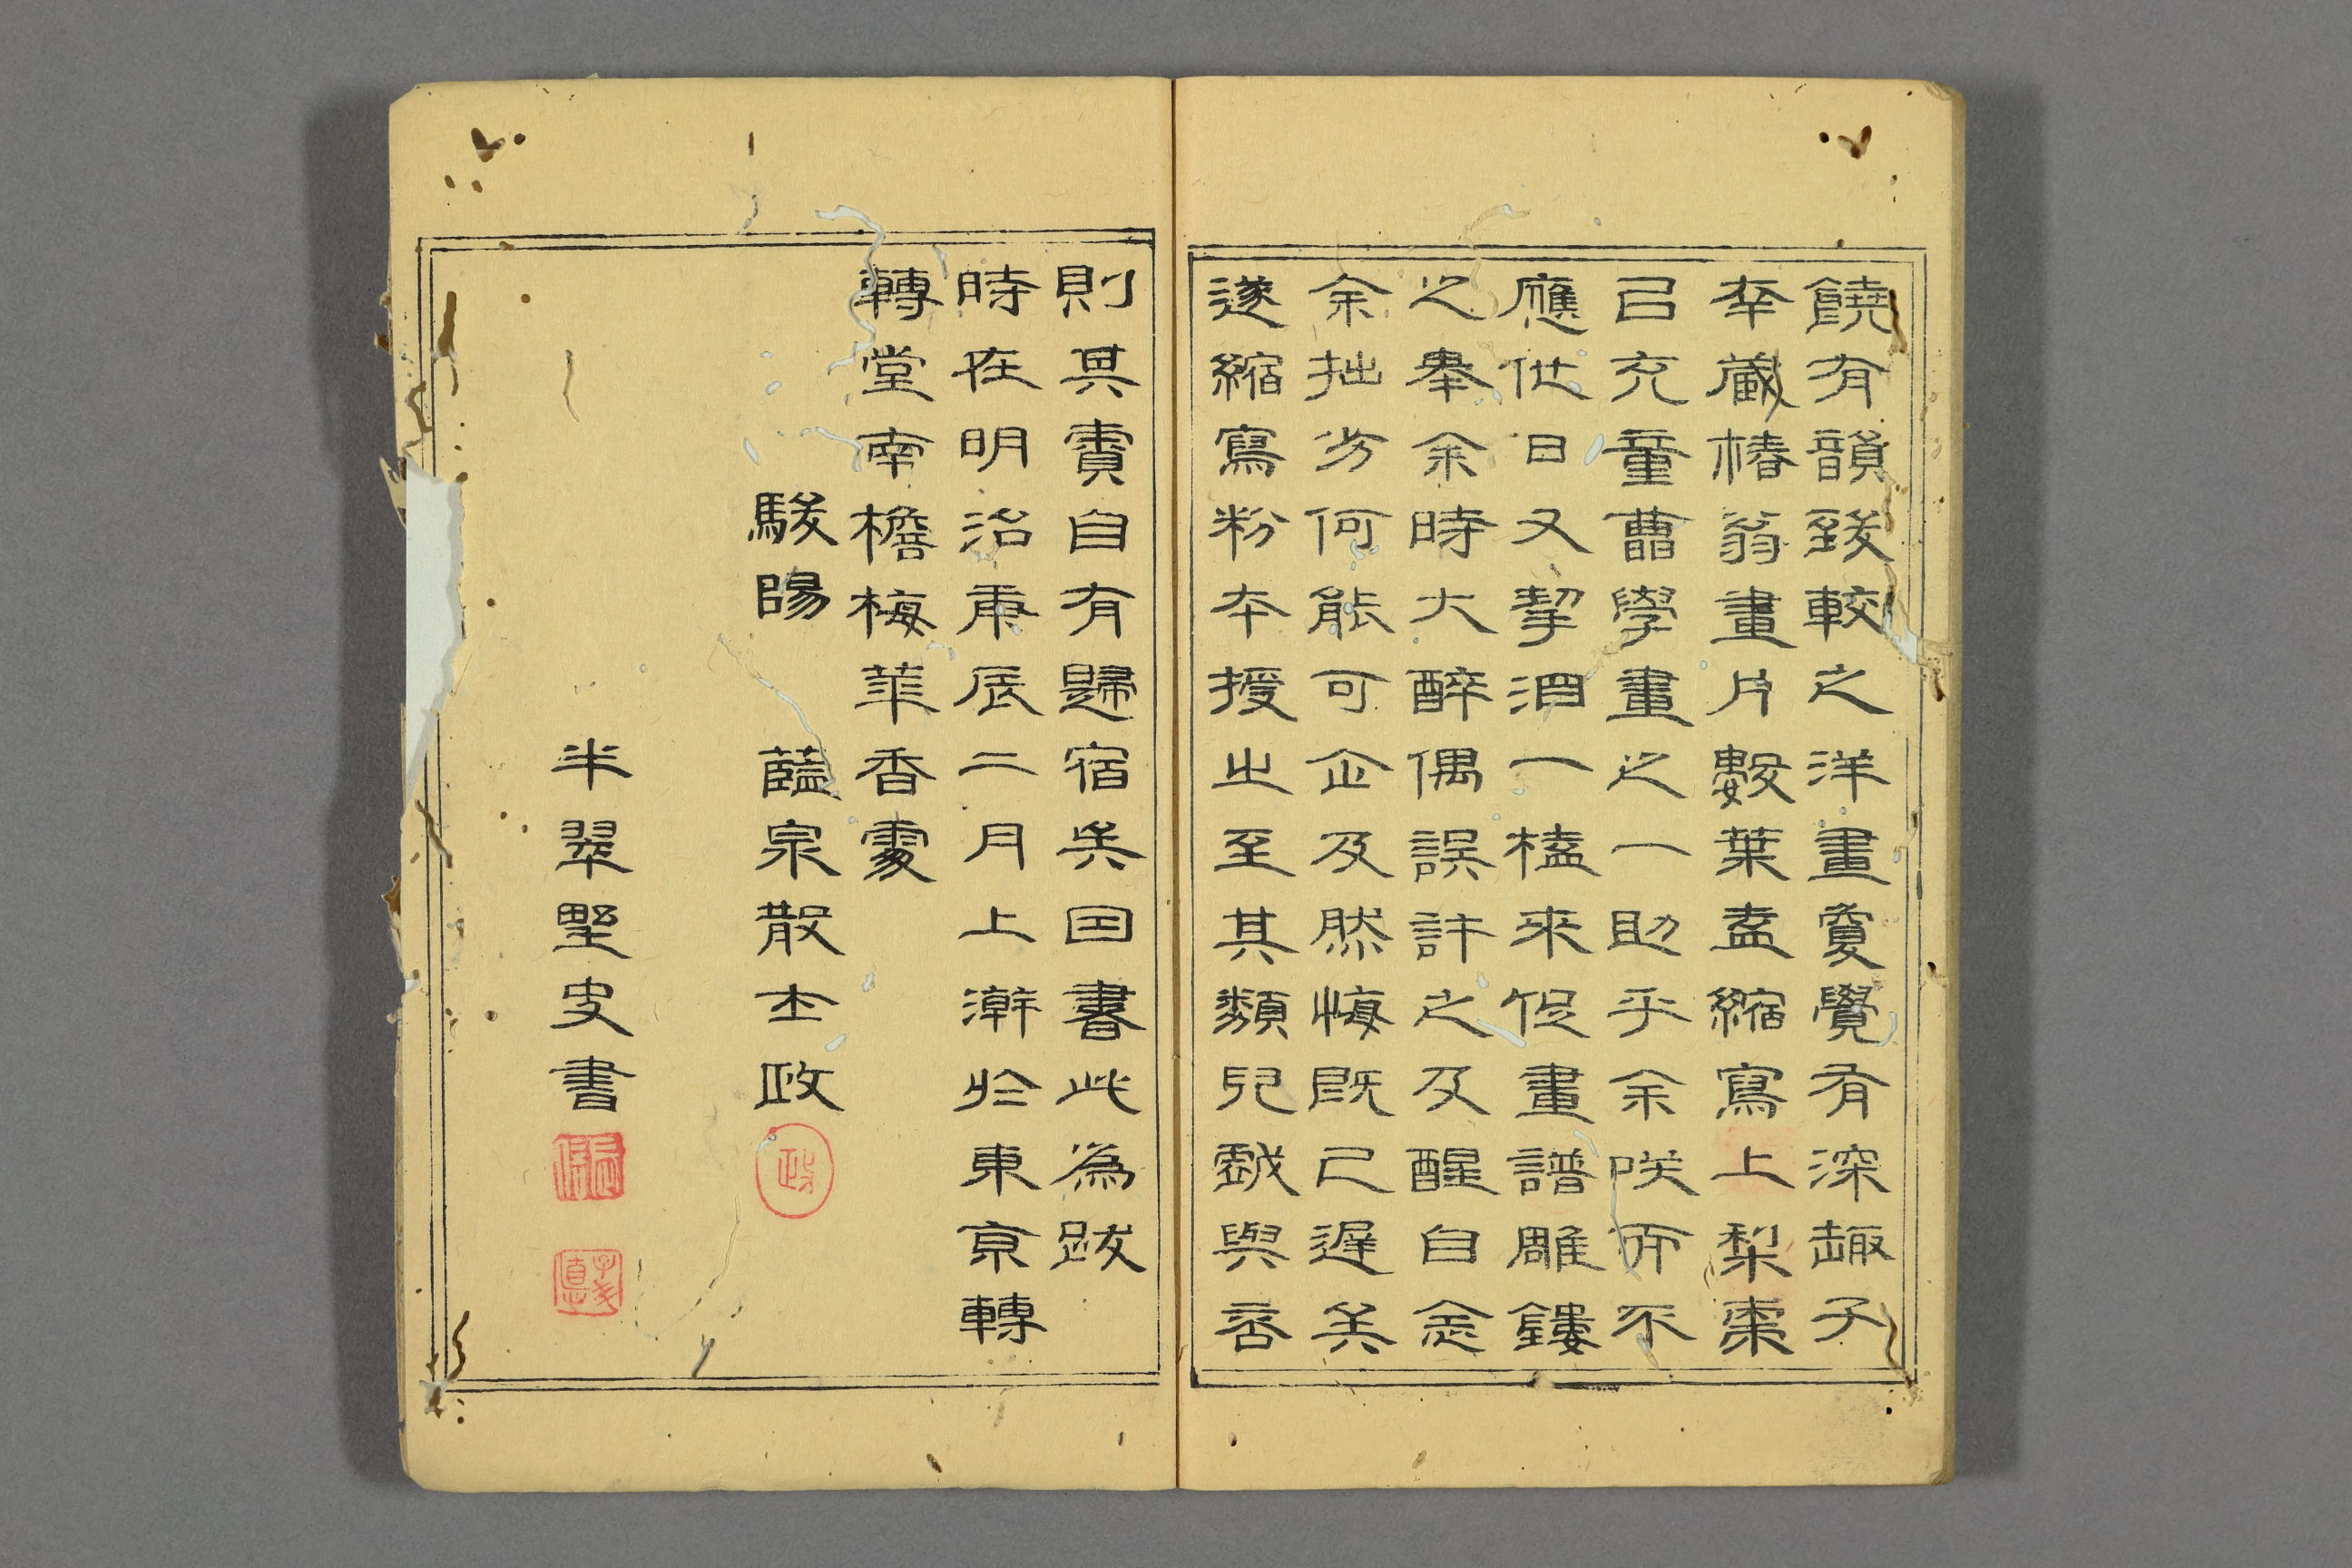 饒有韻致較之洋畫敻覺有深趣子
幸藏椿翁畫片數葉盍縮寫上梨棗
㠯充童曹學畫之一助乎余咲而不
應他日又挈酒一榼來促畫譜雕鏤
之擧余時大醉偶誤許之及醒自念
余拙劣何能可企及然悔既已遲矣
遂縮寫粉本授之至其類兒戲與否
則其責自有歸宿矣因書此為跋
時在明治庚辰二月上澣於東京轉
轉堂南檐梅華香處
駿陽 蘊泉散士政
半翠墅史書